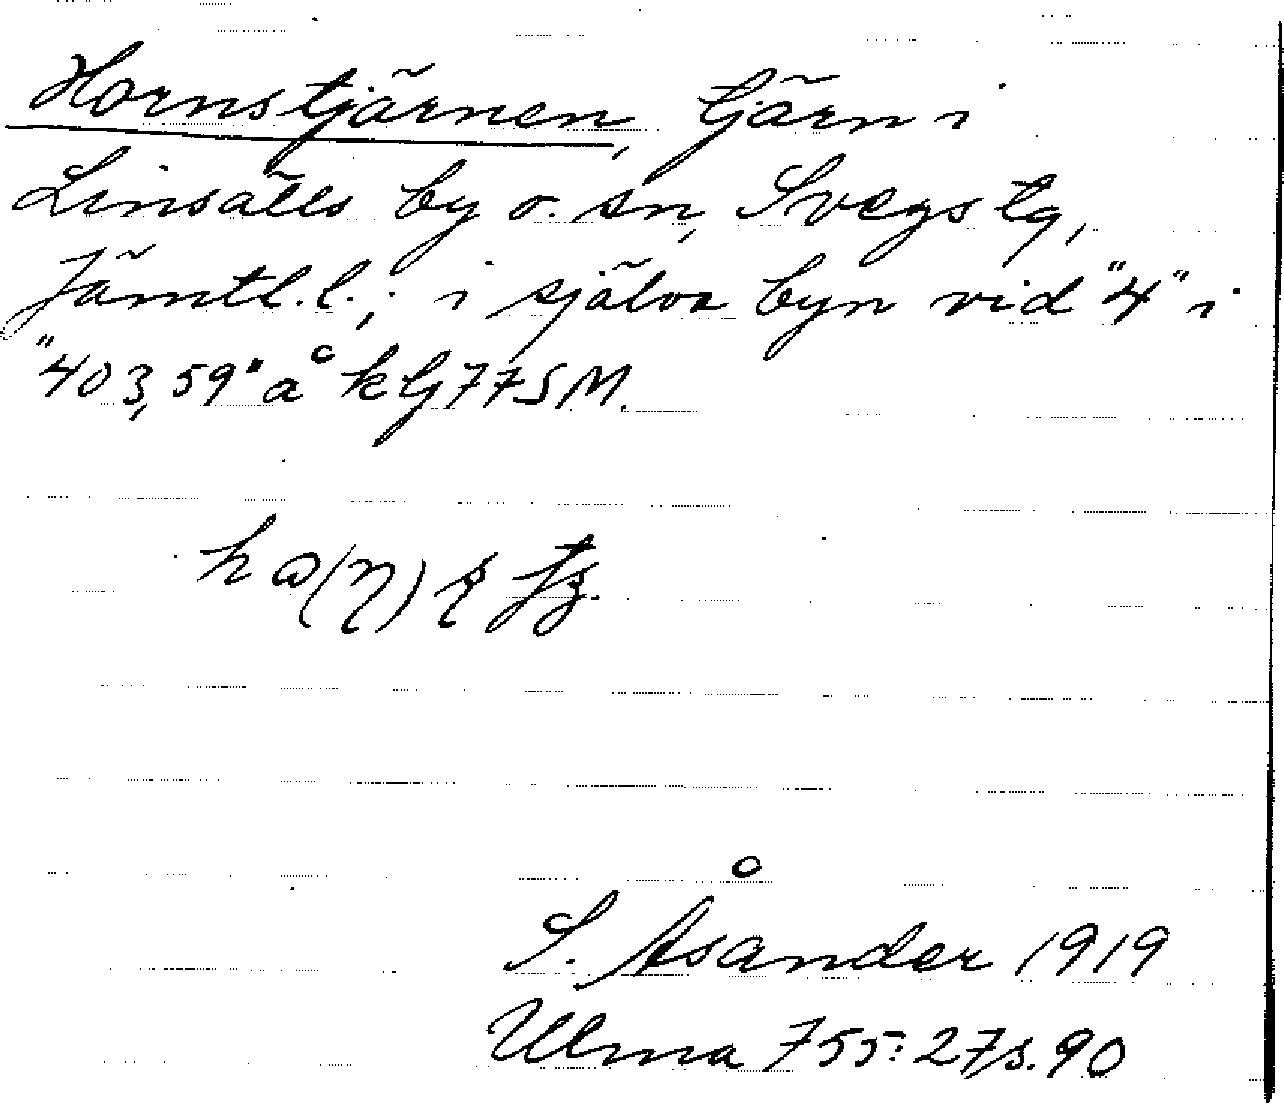 Hornstjärnen, tjärn i
Linsälls by o. sn, Svegs tg,
Jämtl. l.; i själva byn vid "4" i
"403,59" å kG77SM.
S. Åsander 1919
Ulma 755:27 s. 90